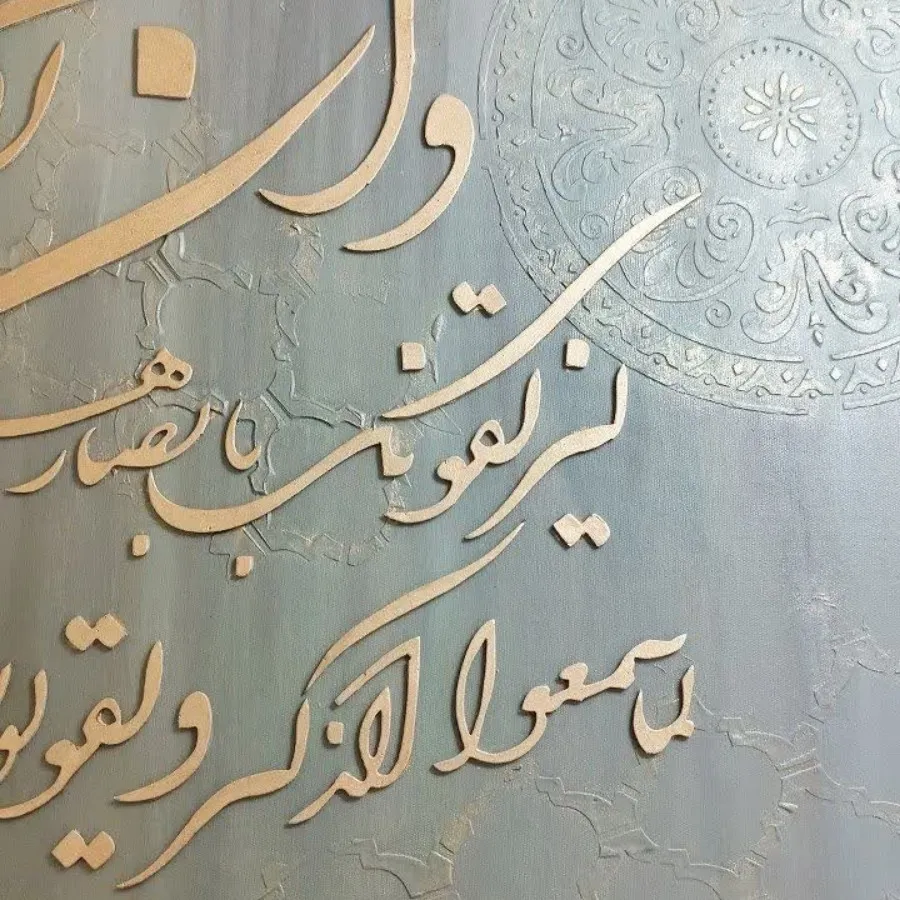 وان
لیزلقونک بابصارهم
لما سمعوا الذکر و یقولو